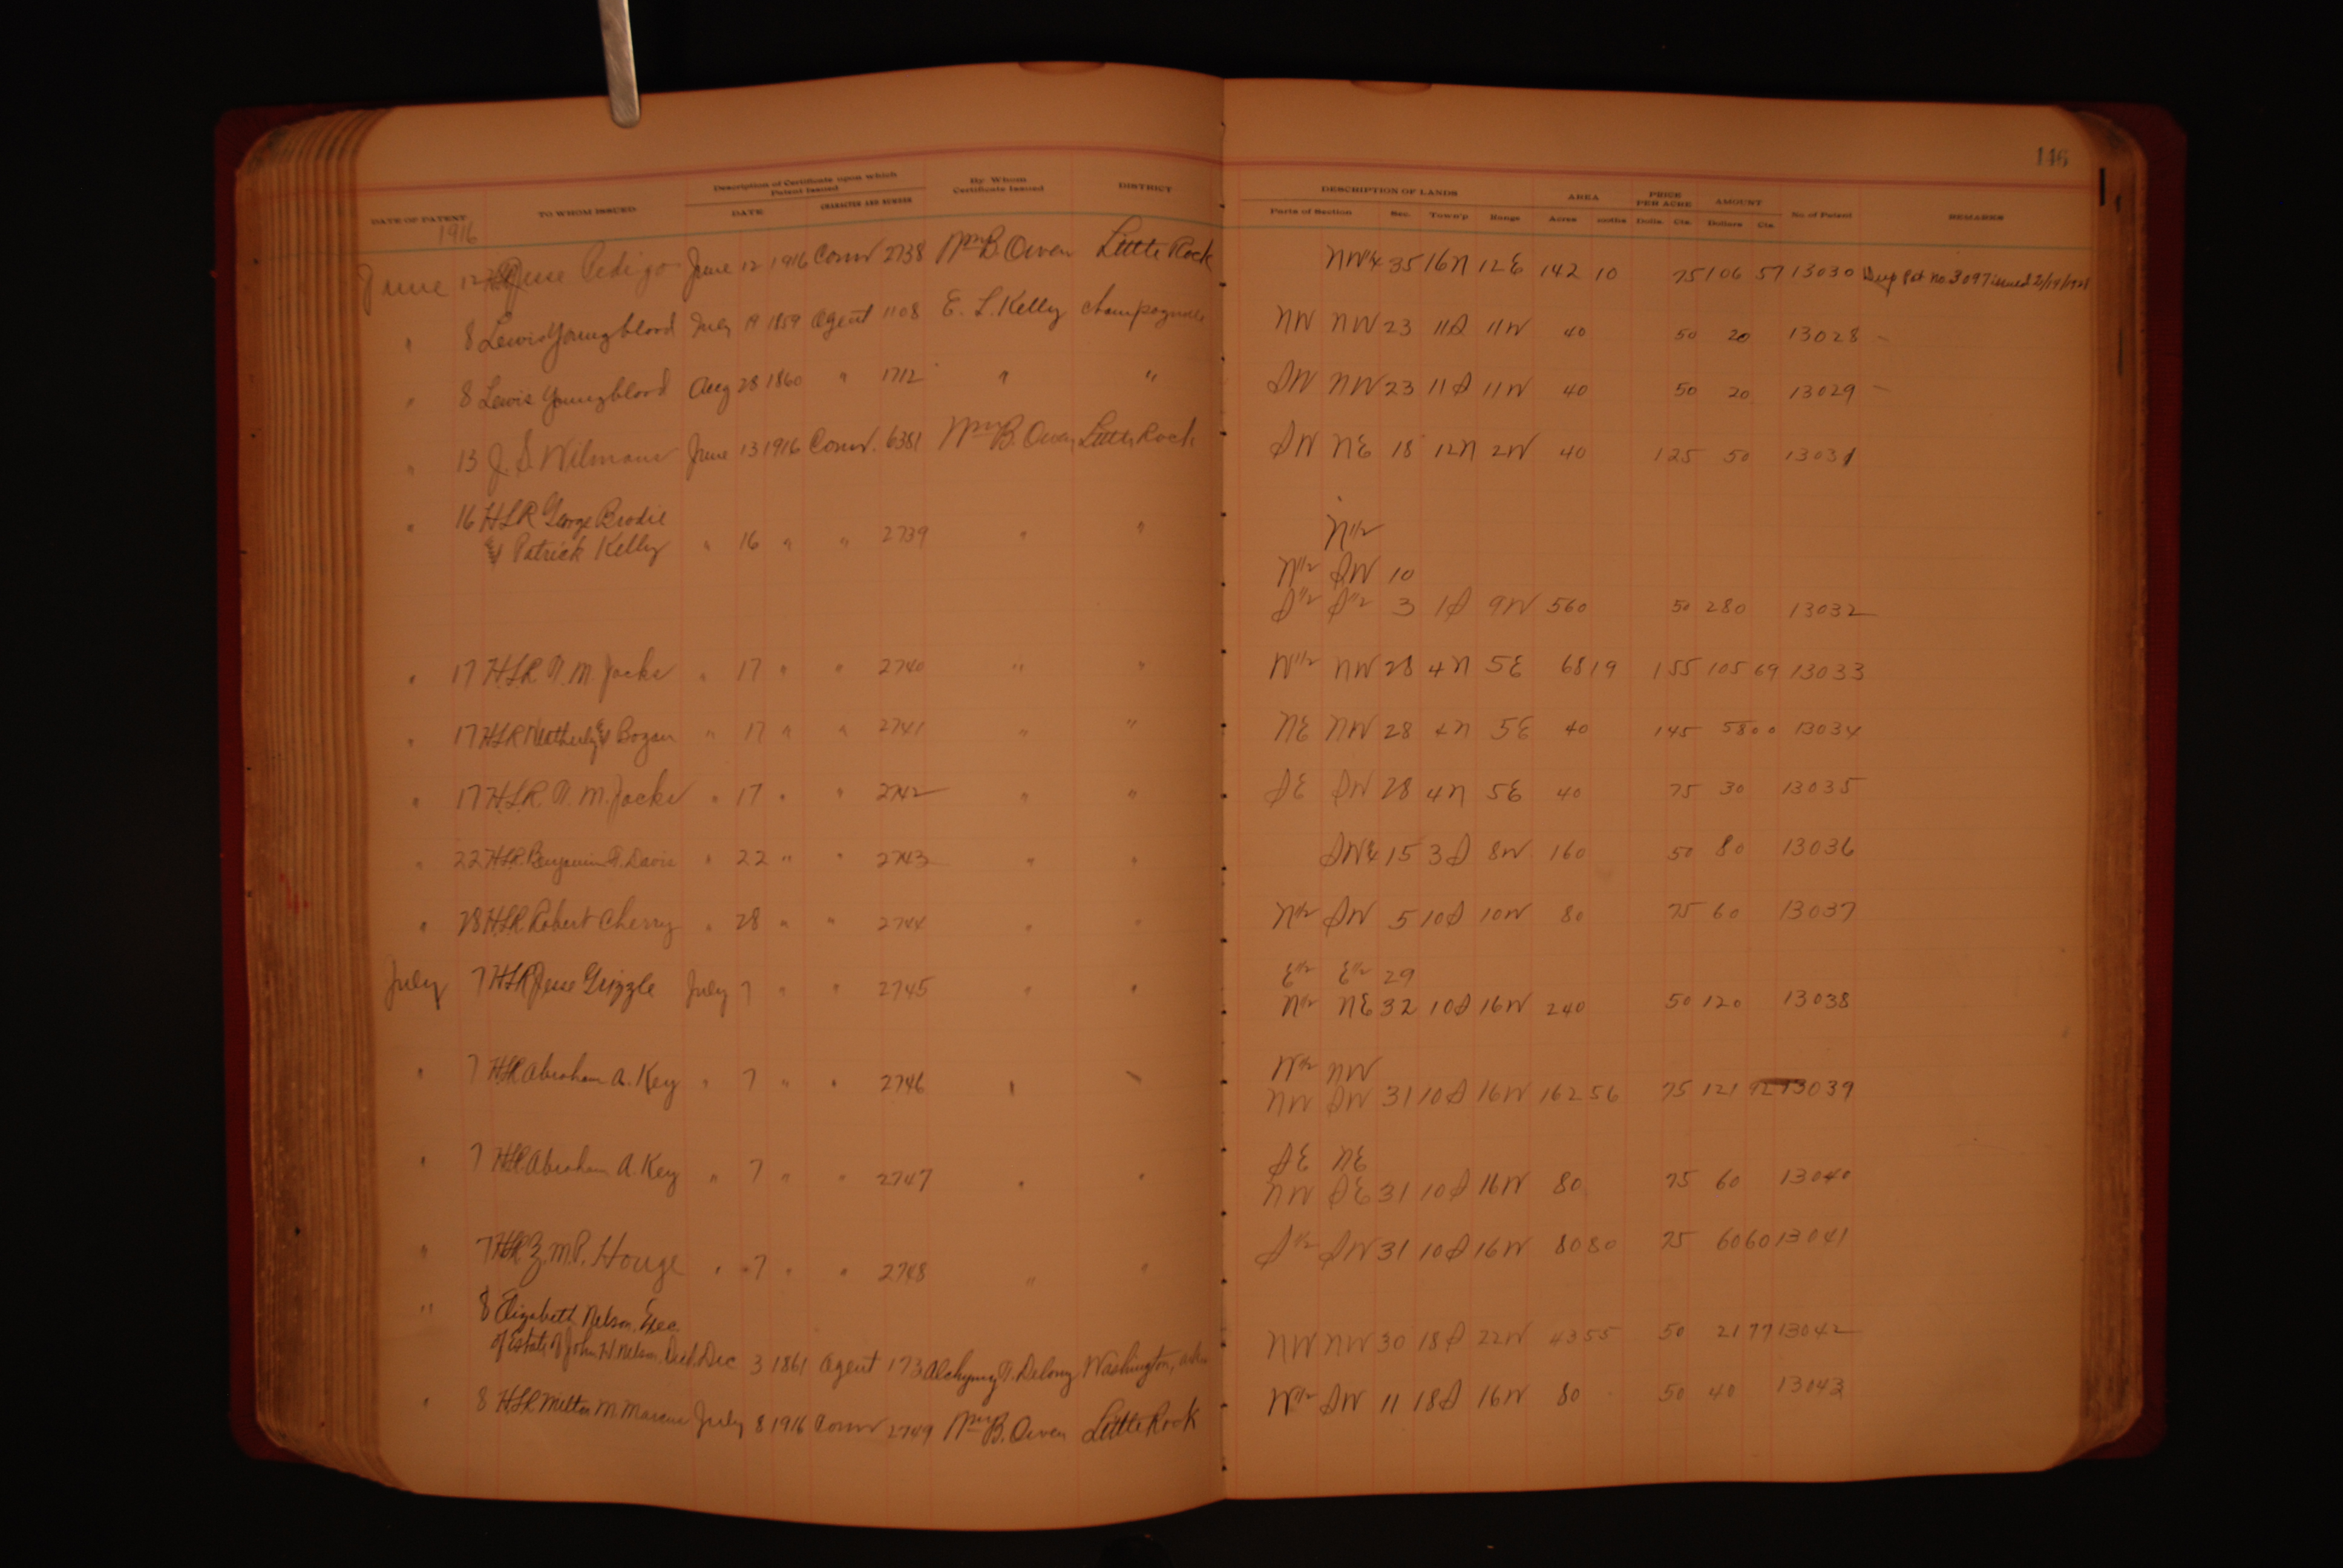 146
DATE OF PATENT TO WHOM ISSUED Description of Certificate upon which Patent Issued DATE CHARACTER AND NUMBER By Whom Certificate Issued DISTRICT DESCRIPTION OF LANDS Parts of Section Sec. Town'p Range AREA Acres PRICE PER ACRE Dolls. Cts. AMOUNT Dollars Cts. No. of Patent REMARKS
1916
June 12 Jesse Pedigo June 12 1916 Comr 2738 Wm B. Owen Little Rock NW¼ 35 16N 12E 142 10 75 106 57 13030 Dup Pat no 3097 issued 2/19/1921
" 8 Lewis Youngblood July 19 1859 Agent 1108 E. L. Kelly Champagnolle NW NW 23 11S 11W 40 50 20 13028
" 8 Lewis Youngblood Aug 28 1860 " 1712 " " SW NW 23 11S 11W 40 50 20 13029
" 13 J. S. Wilmans June 13 1916 Comr. 6381 Wm B. Owen Little Rock SW NE 18 12N 2W 40 1 25 50 13031
" 16 HLR George Brodie N½
& Patrick Kelly " 16 " " 2739 " " N½ SW 10
S½ S½ 3 1S 9W 560 50 280 13032
" 17 HLR T. M. Jacks " 17 " " 2740 " " W½ NW 28 4N 5E 68 19 1 55 105 69 13033
" 17 HLR & Bogan " 17 " " 2741 " " NE NW 28 4N 5E 40 1 45 58 00 13034
" 17 HLR T. M. Jacks " 17 " " 2742 " " SE SW 28 4N 5E 40 75 30 13035
" 22 HLR Benjamin T. Davis " 22 " " 2743 " " SW¼ 15 3S 8W 160 50 80 13036
" 28 HLR Robert Cherry " 28 " " 2744 " " N½ SW 5 10S 10W 80 75 60 13037
July 7 HLR Jesse Grizzle July 7 " " 2745 " " E½ E½ 29
N½ NE 32 10S 16W 240 50 120 13038
" 7 HLR Abraham A. Key " 7 " " 2746 " " W½ NW
NW SW 31 10S 16W 162 56 75 121 92 13039
" 7 HLR Abraham A. Key " 7 " " 2747 " " SE NE
NW SE 31 10S 16W 80 75 60 13040
" 7 HLR Z. M. P. Houge " 7 " " 2748 " " S½ SW 31 10S 16W 80 80 75 60 60 13041
" 8 Elizabeth Nelson, Exec.
of Estate of John H. Nelson, Decd. Dec 3 1861 Agent 173 T. Delony Washington, Ark NW NW 30 18S 22W 43 55 50 21 77 13042
" 8 HLR Milton M. Marcus July 8 1916 Comr 2749 Wm B. Owen Little Rock W½ SW 11 18S 16W 80 50 40 13043